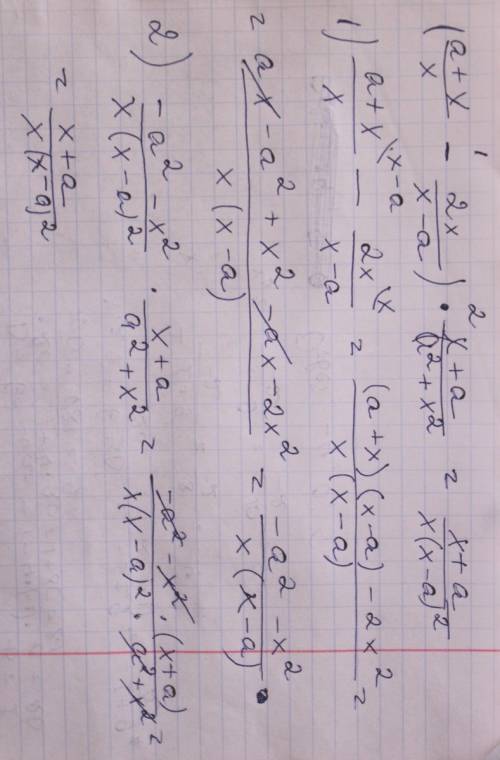 1 2
((a+x)/x − 2x/(x−a)) · (x+a)/(a²+x²) = (x+a)/(x(x−a)²)
1) (a+x)/x \x−a − 2x/(x−a) \x = ((a+x)(x−a) − 2x²)/(x(x−a)) =
= (ax − a² + x² − ax − 2x²)/(x(x−a)) = (−a² − x²)/(x(x−a)) ·
2) (−a² − x²)/(x(x−a)²) · (x+a)/(a²+x²) = (−a² − x² · (x+a))/(x(x−a)² · a²+x²) =
= (x+a)/(x(x−a)²)